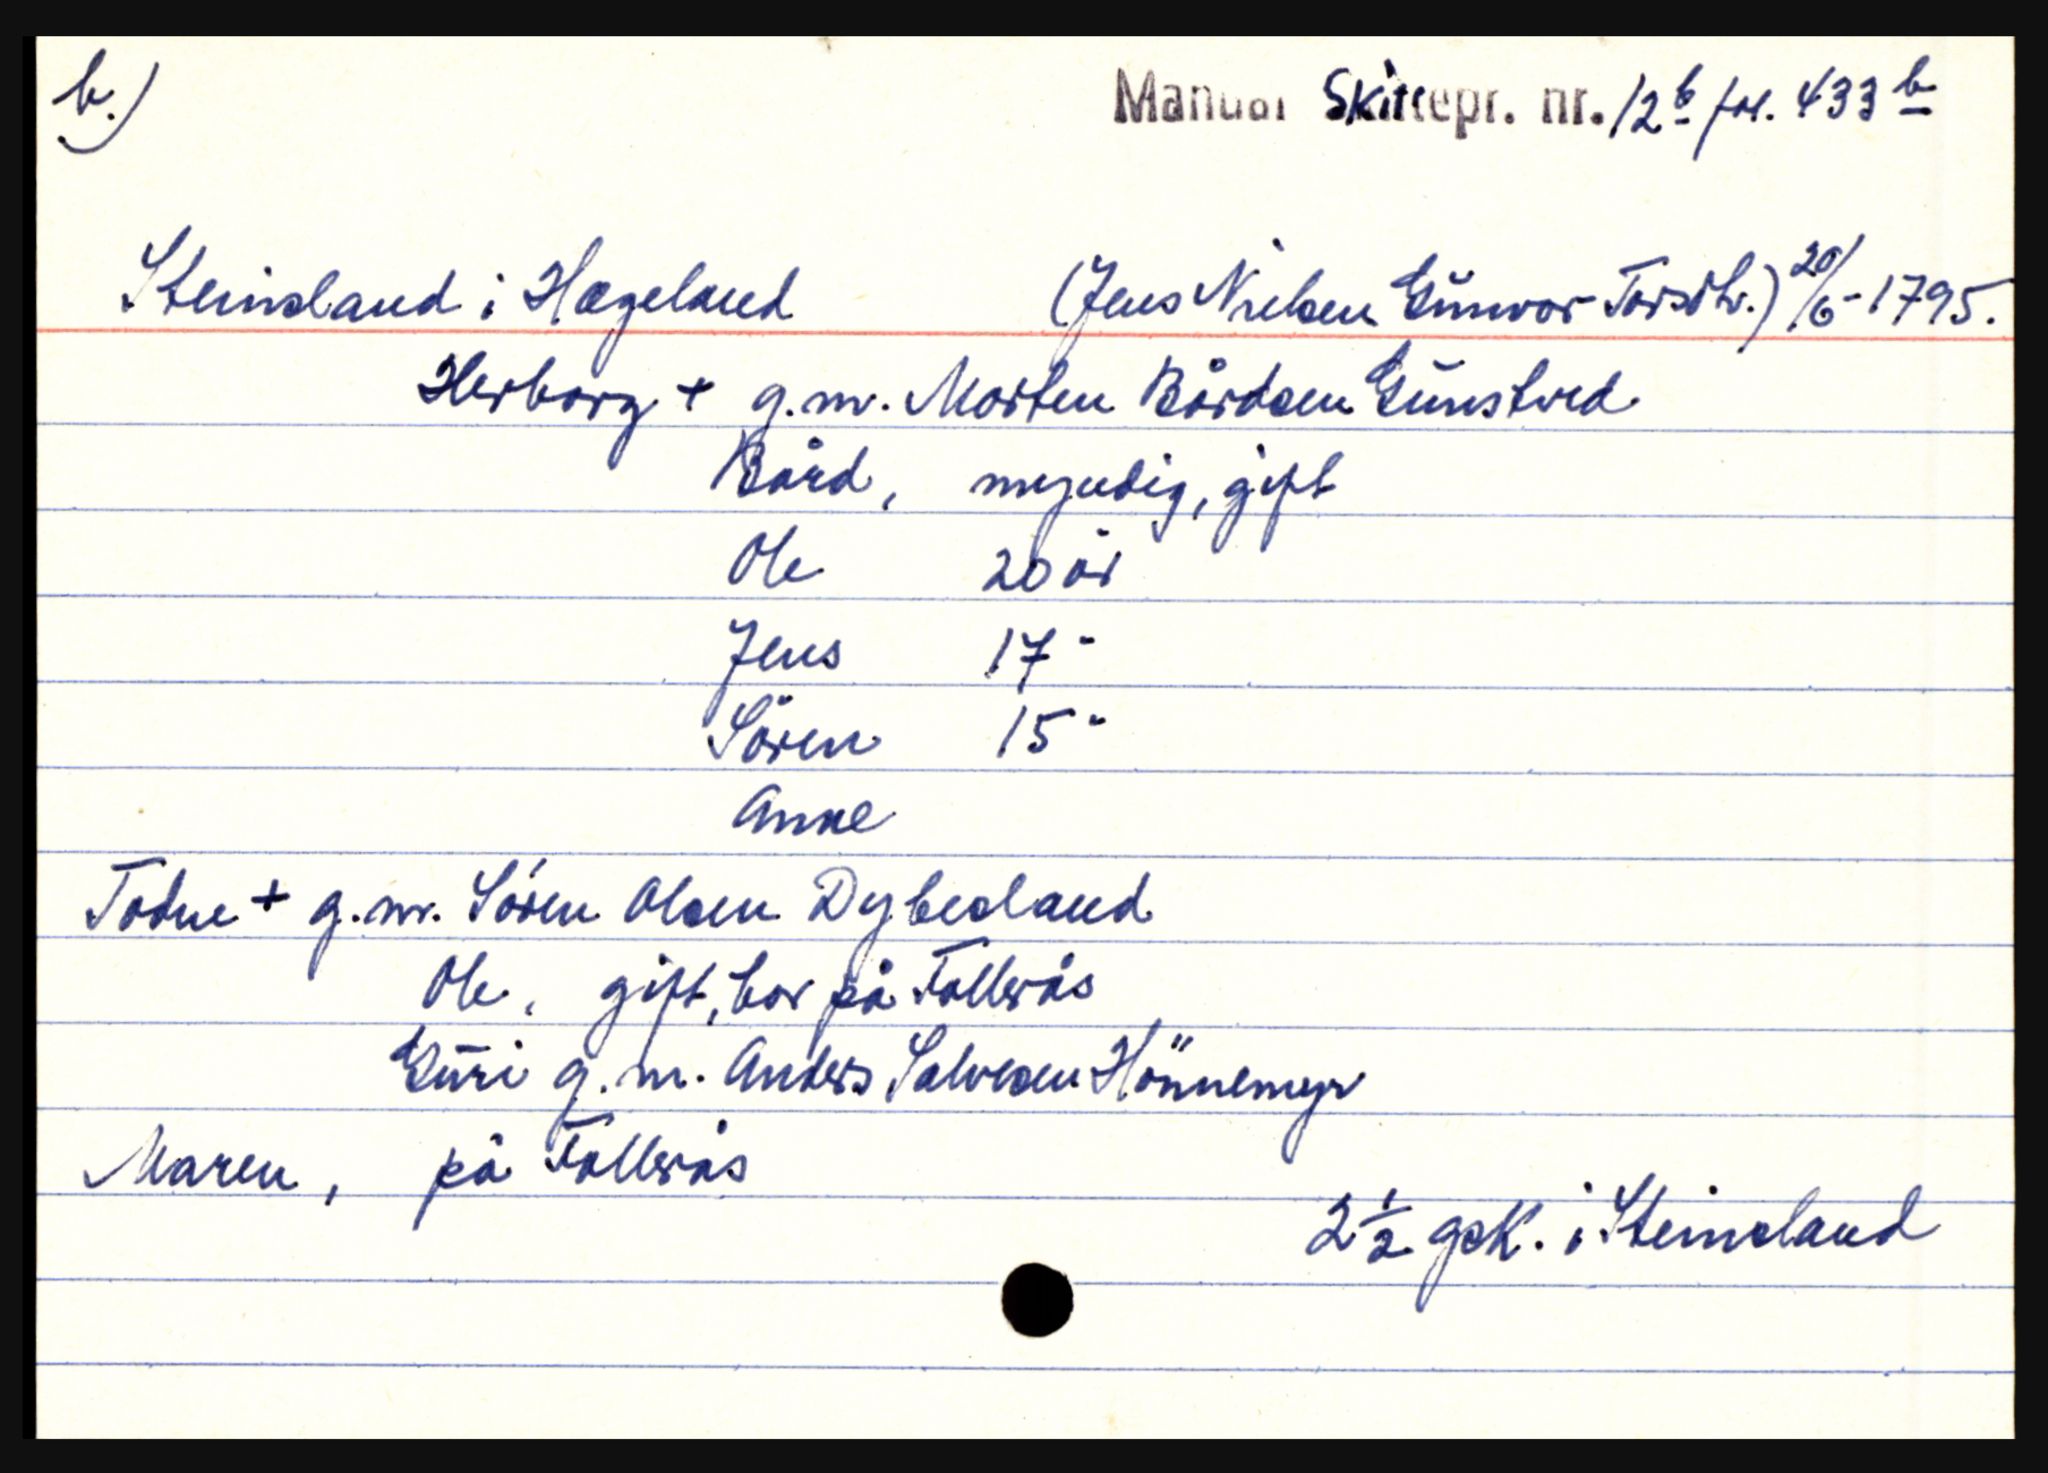 b.)
Manual Skiftepr. nr. 12 b fol. 433 b
Steinsland i Hægeland (Jens Nielsen Gŭnvor Torsdtr.) 20/6-1795.
Herborg + g.m. Morten Bårdsen Gŭnstved
Bård, myndig, gift
Ole 20 år
Jens 17 "
Sören 15 "
Anne
Todne + g.m. Sören Olsen Dybesland
Ole, gift, bor på Follerås
Gŭri g.m. Anders Salvesen Hönnemyr
Maren, på Follerås
2 1/2 gsk. i Steinsland